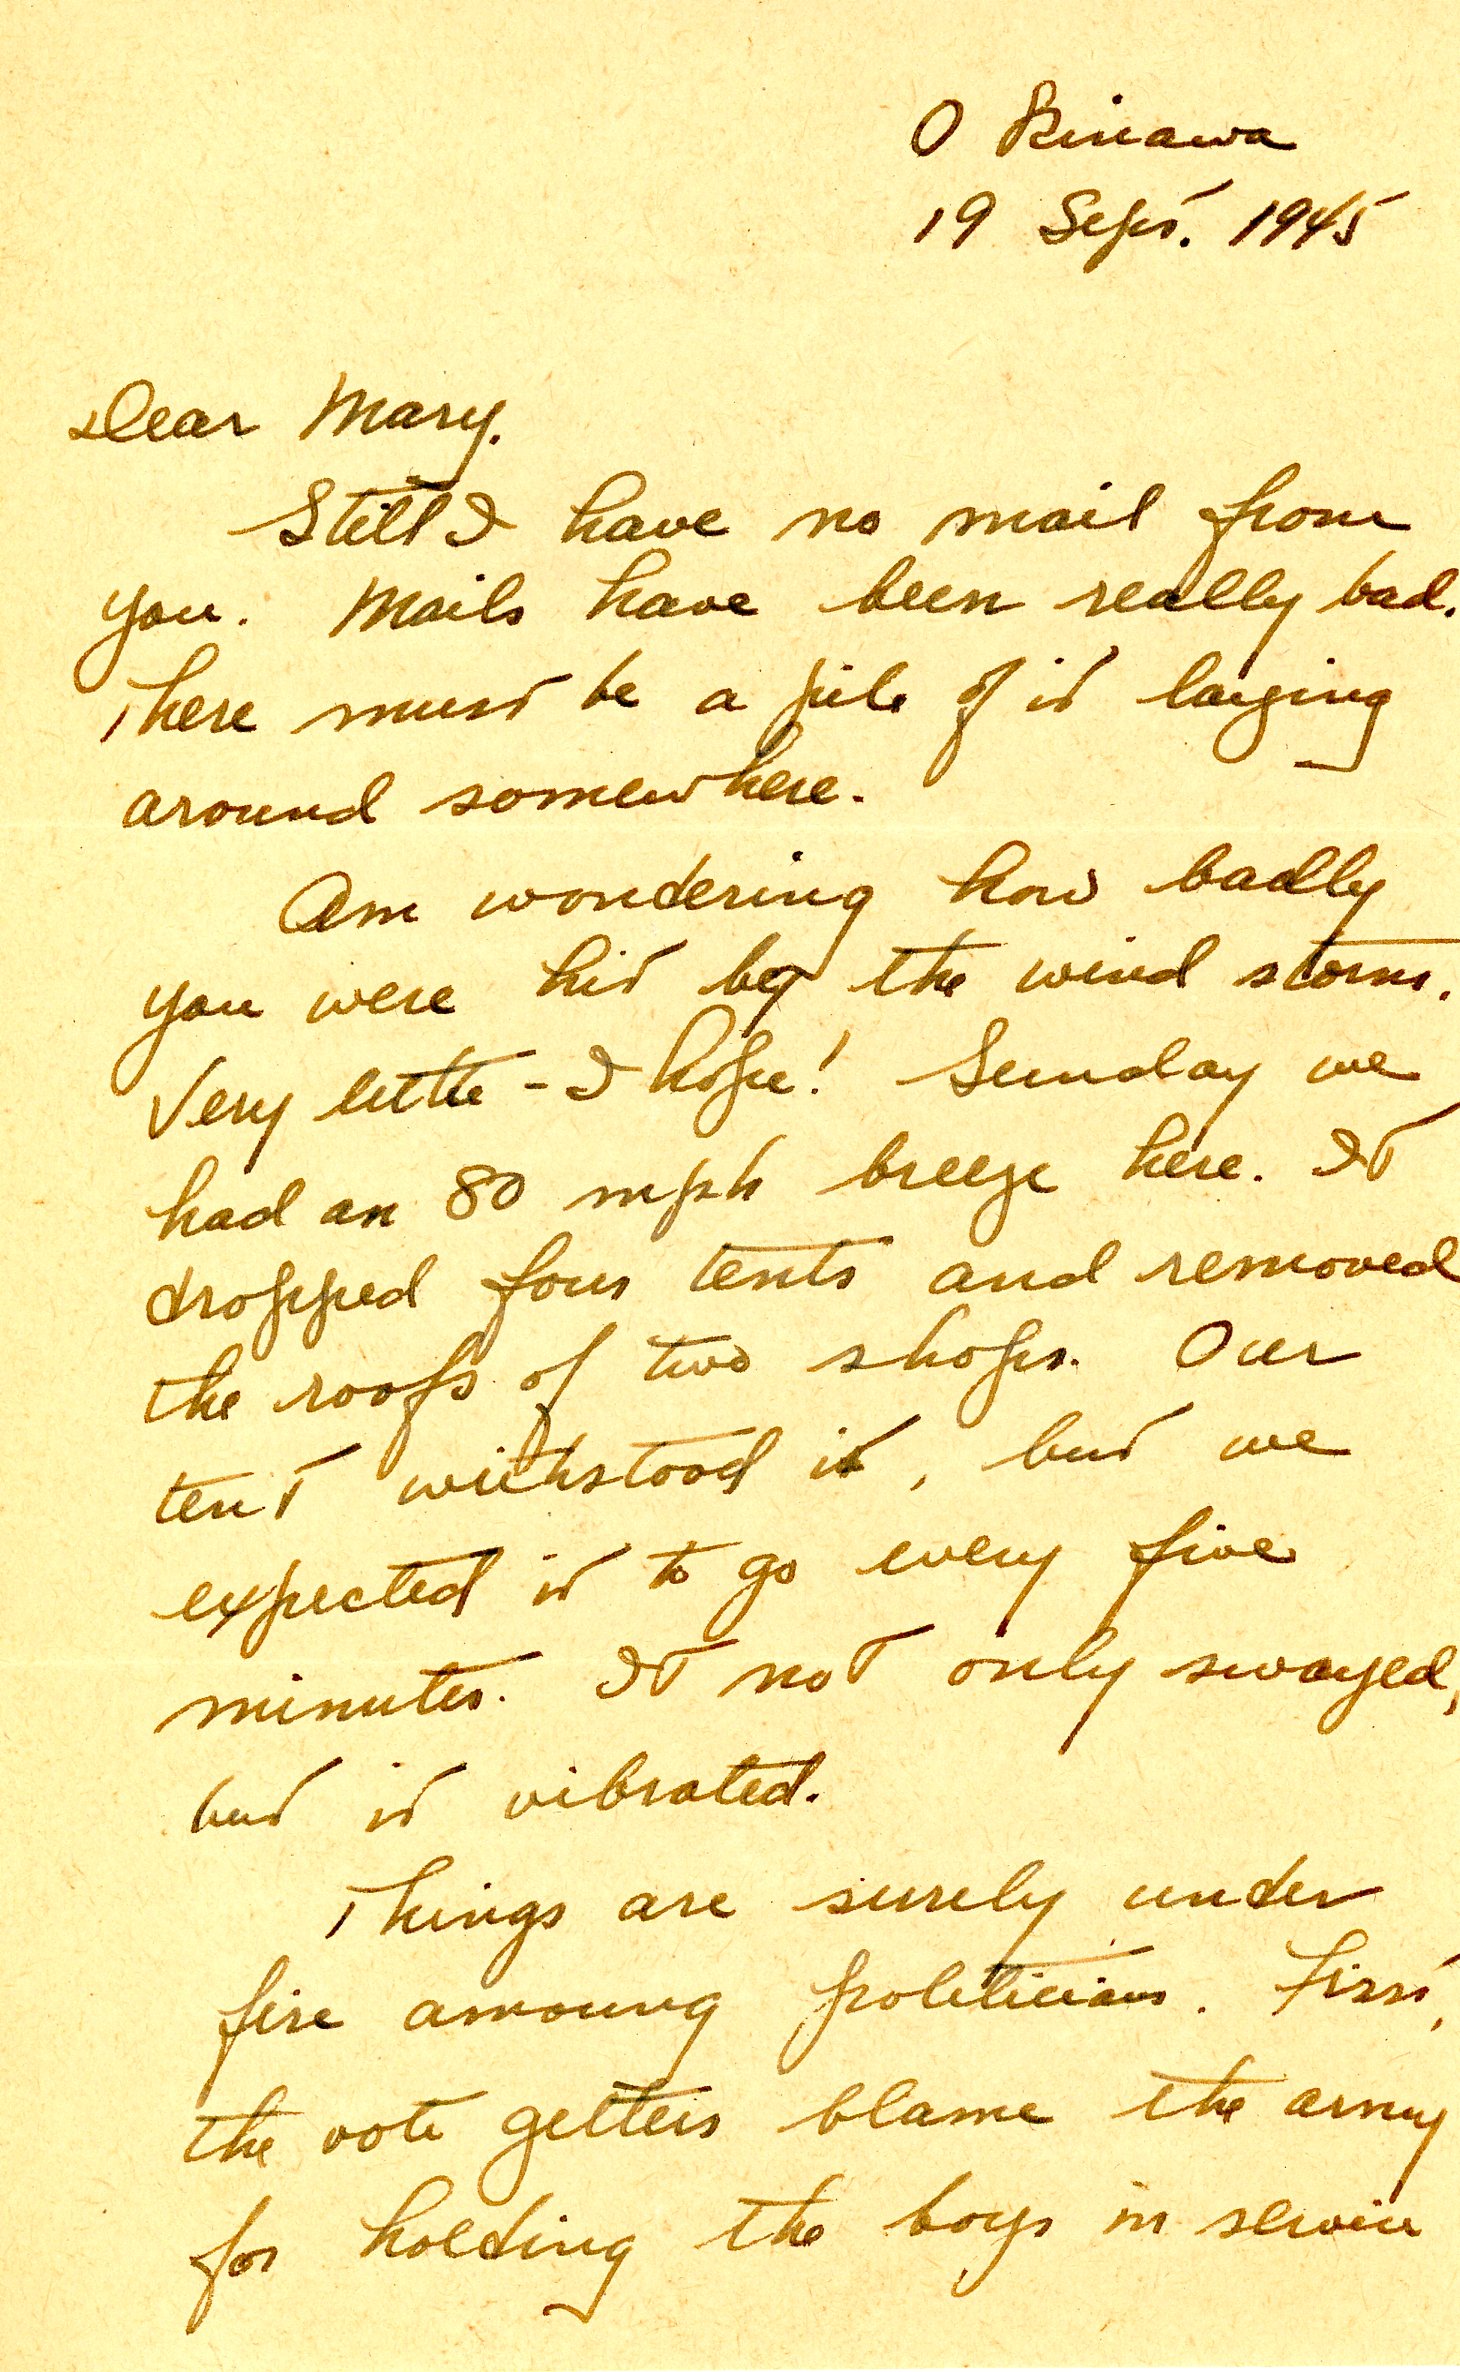 Okinawa
19 Sept. 1945
Dear Mary.
Still I have no mail from
you. Mails have been really bad.
There must be a pile of it laying
around somewhere.
Am wondering how badly
you were hit by the wind storm.
Very little - I hope! Sunday we
had an 80 mph breeze here. It
dropped four tents and removed
the roofs of two shops. Our
tent withstood it, but we
expected it to go every five
minutes. It not only swayed,
but it vibrated.
Things are surely under
fire amoung politicians. First,
the vote getters blame the army
for holding the boys in service